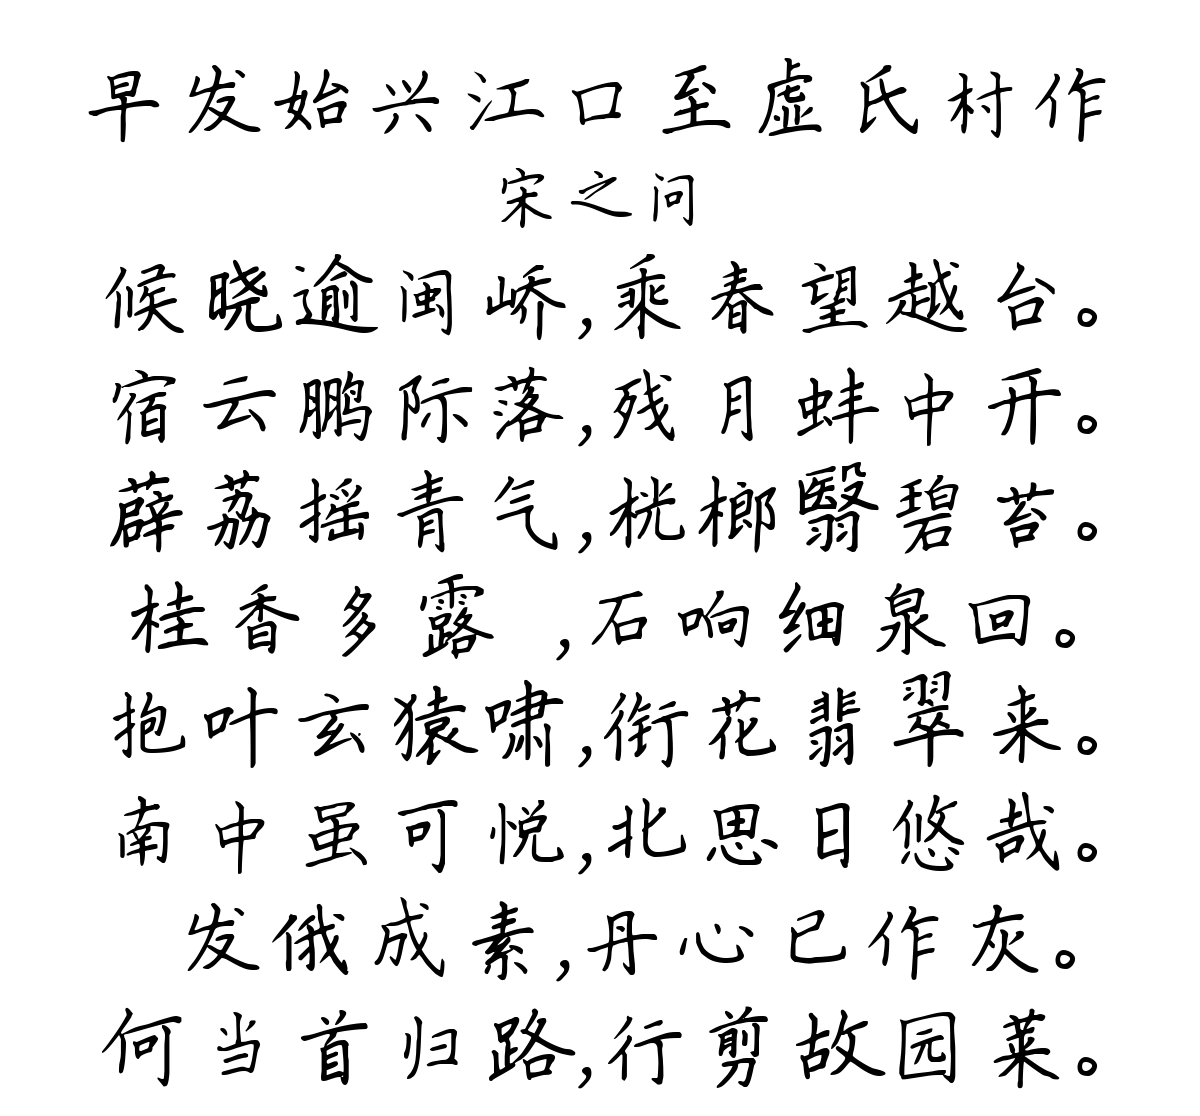 早发始兴江口至虚氏村作
宋之问
候晓逾闽峤,乘春望越台。
宿云鹏际落,残月蚌中开。
薜荔摇青气,桄榔翳碧苔。
桂香多露,石响细泉回。
抱叶玄猿啸,衔花翡翠来。
南中虽可悦,北思日悠哉。
发俄成素,丹心已作灰。
何当首归路,行剪故园莱。